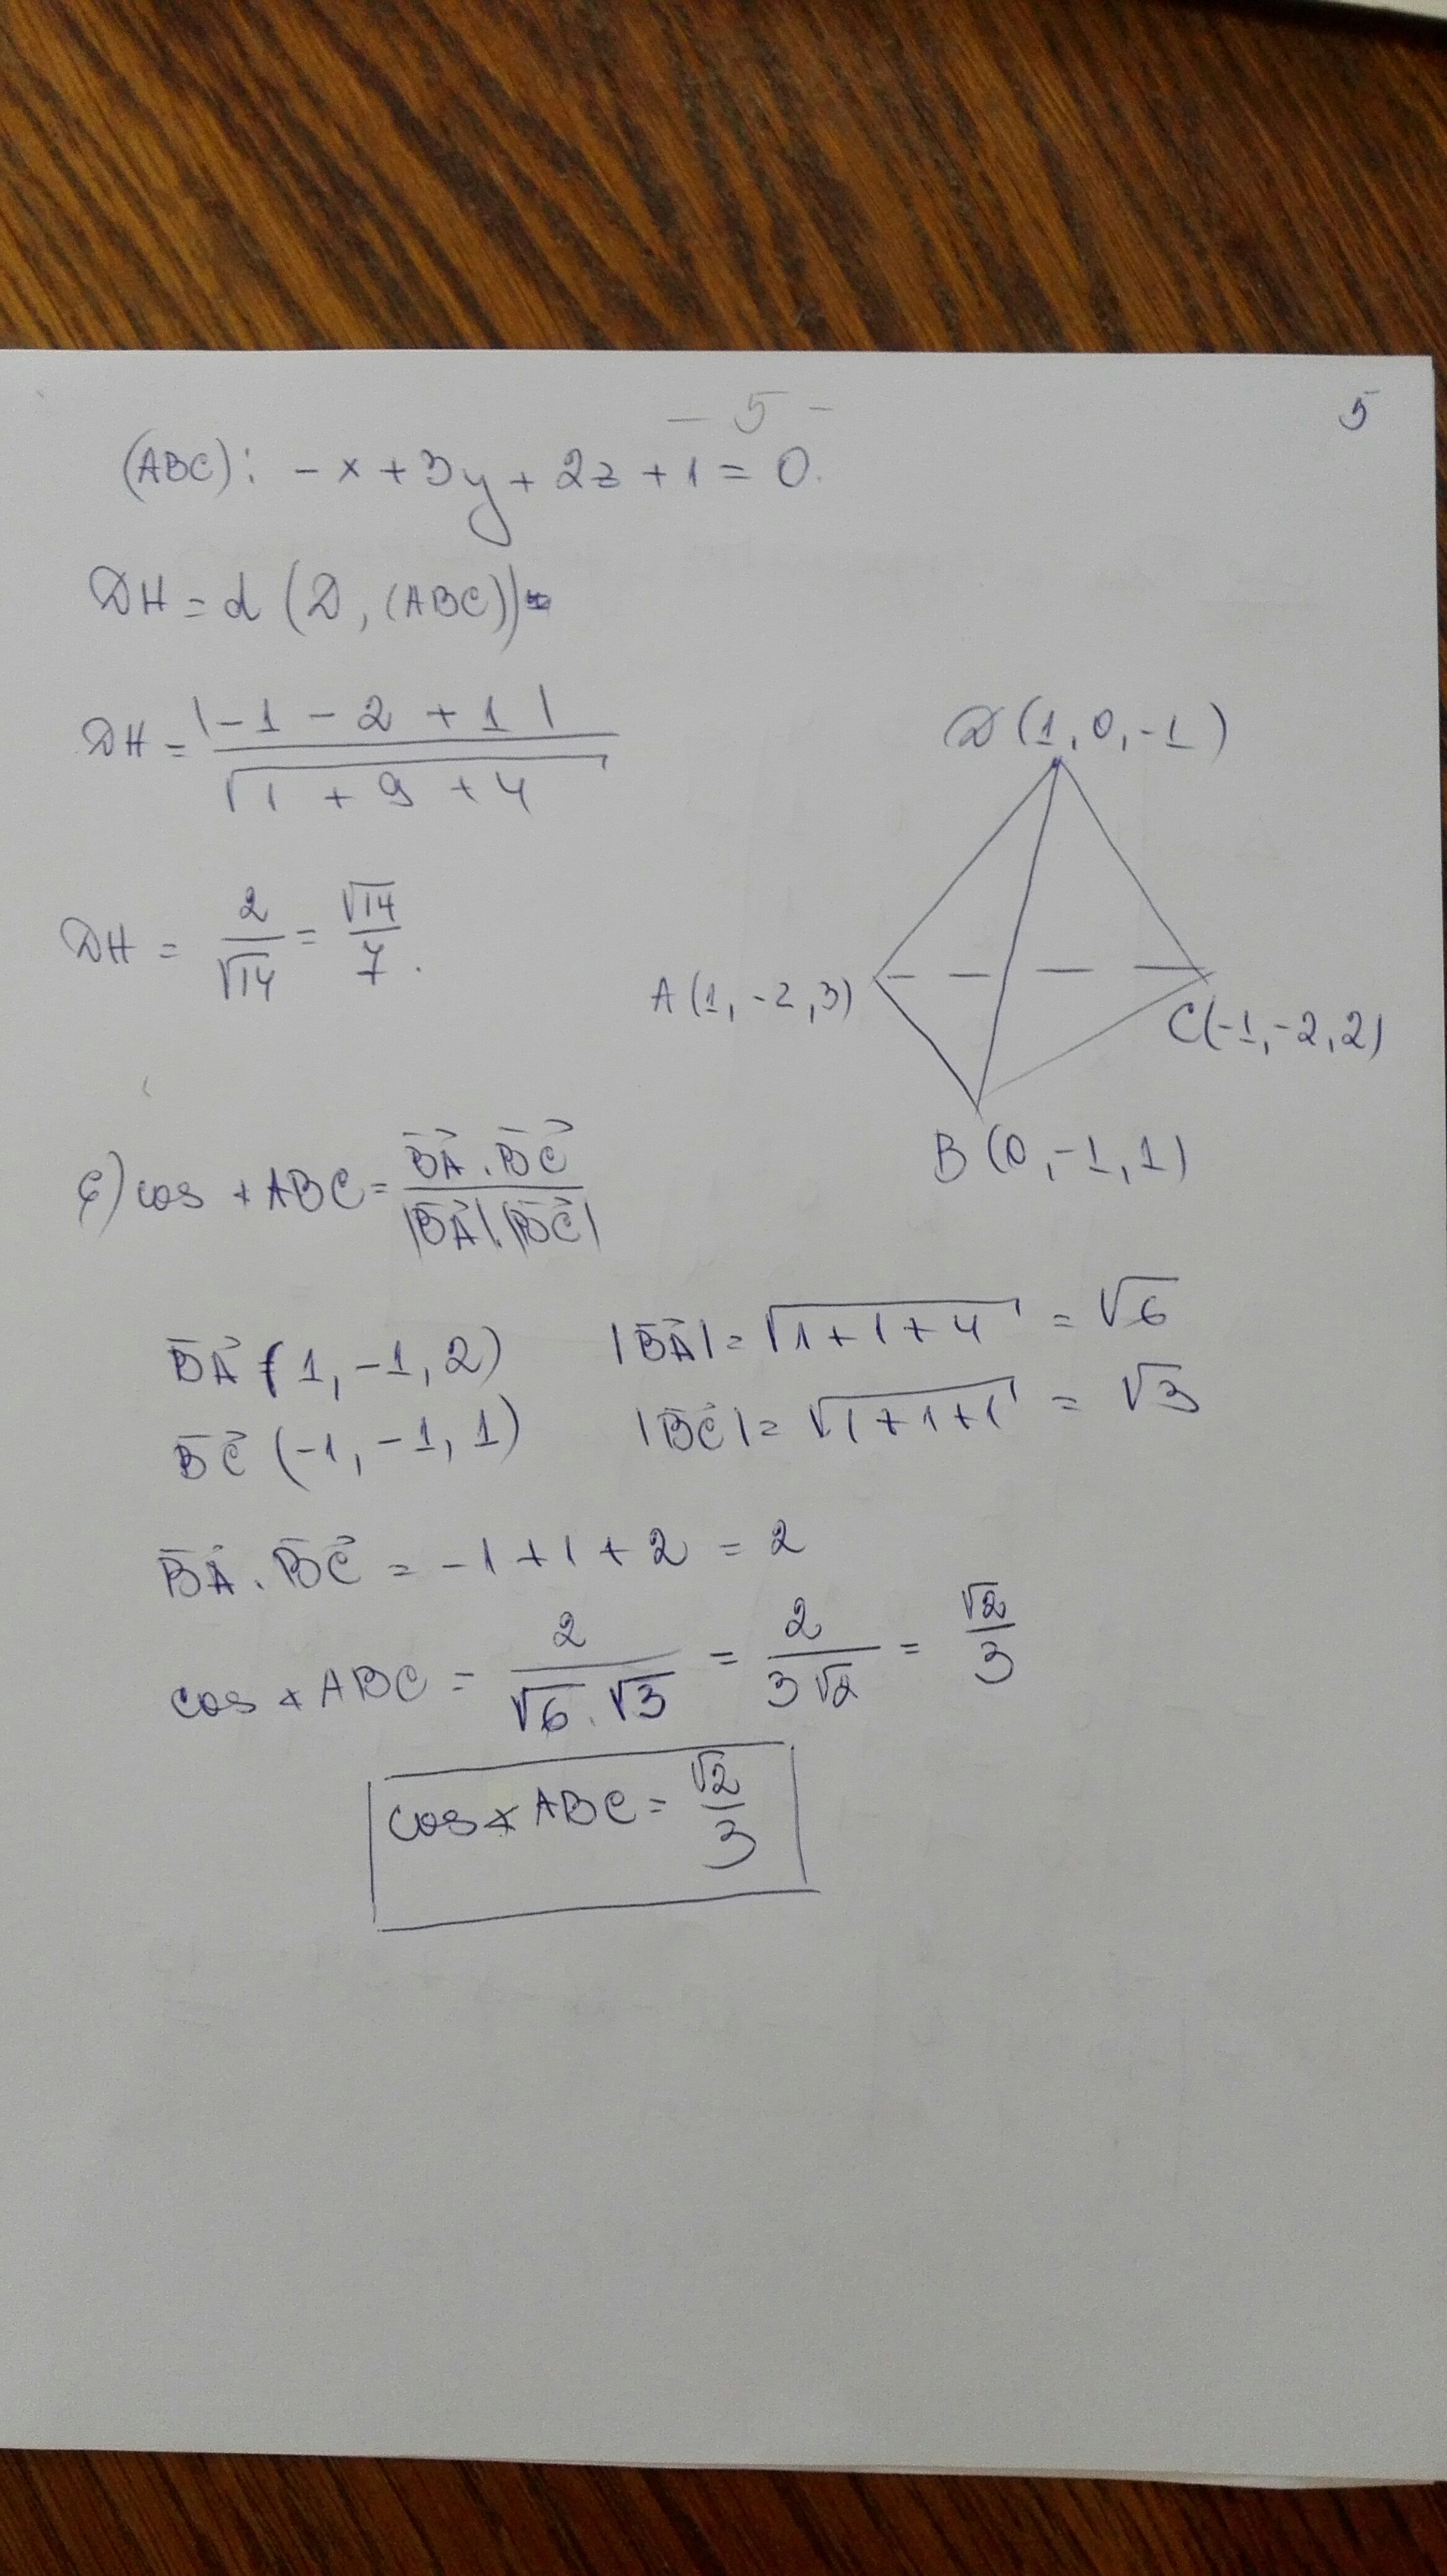 - 5 -
5
(ABC): -x + 3y + 2z + 1 = 0.
DH = d (D, (ABC))
DH = |-1 - 2 + 1| / √(1 + 9 + 4)
D(1, 0, -1)
DH = 2/√14 = √14/7.
A(1, -2, 3)
C(-1, -2, 2)
B(0, -1, 1)
c) cos ∢ ABC = BA⃗ . BC⃗ / |BA⃗|.|BC⃗|
BA⃗ (1, -1, 2) |BA⃗| = √(1 + 1 + 4) = √6
BC⃗ (-1, -1, 1) |BC⃗| = √(1 + 1 + 1) = √3
BA⃗ . BC⃗ = -1 + 1 + 2 = 2
cos ∢ ABC = 2/(√6 . √3) = 2/(3√2) = √2/3
cos ∢ ABC = √2/3